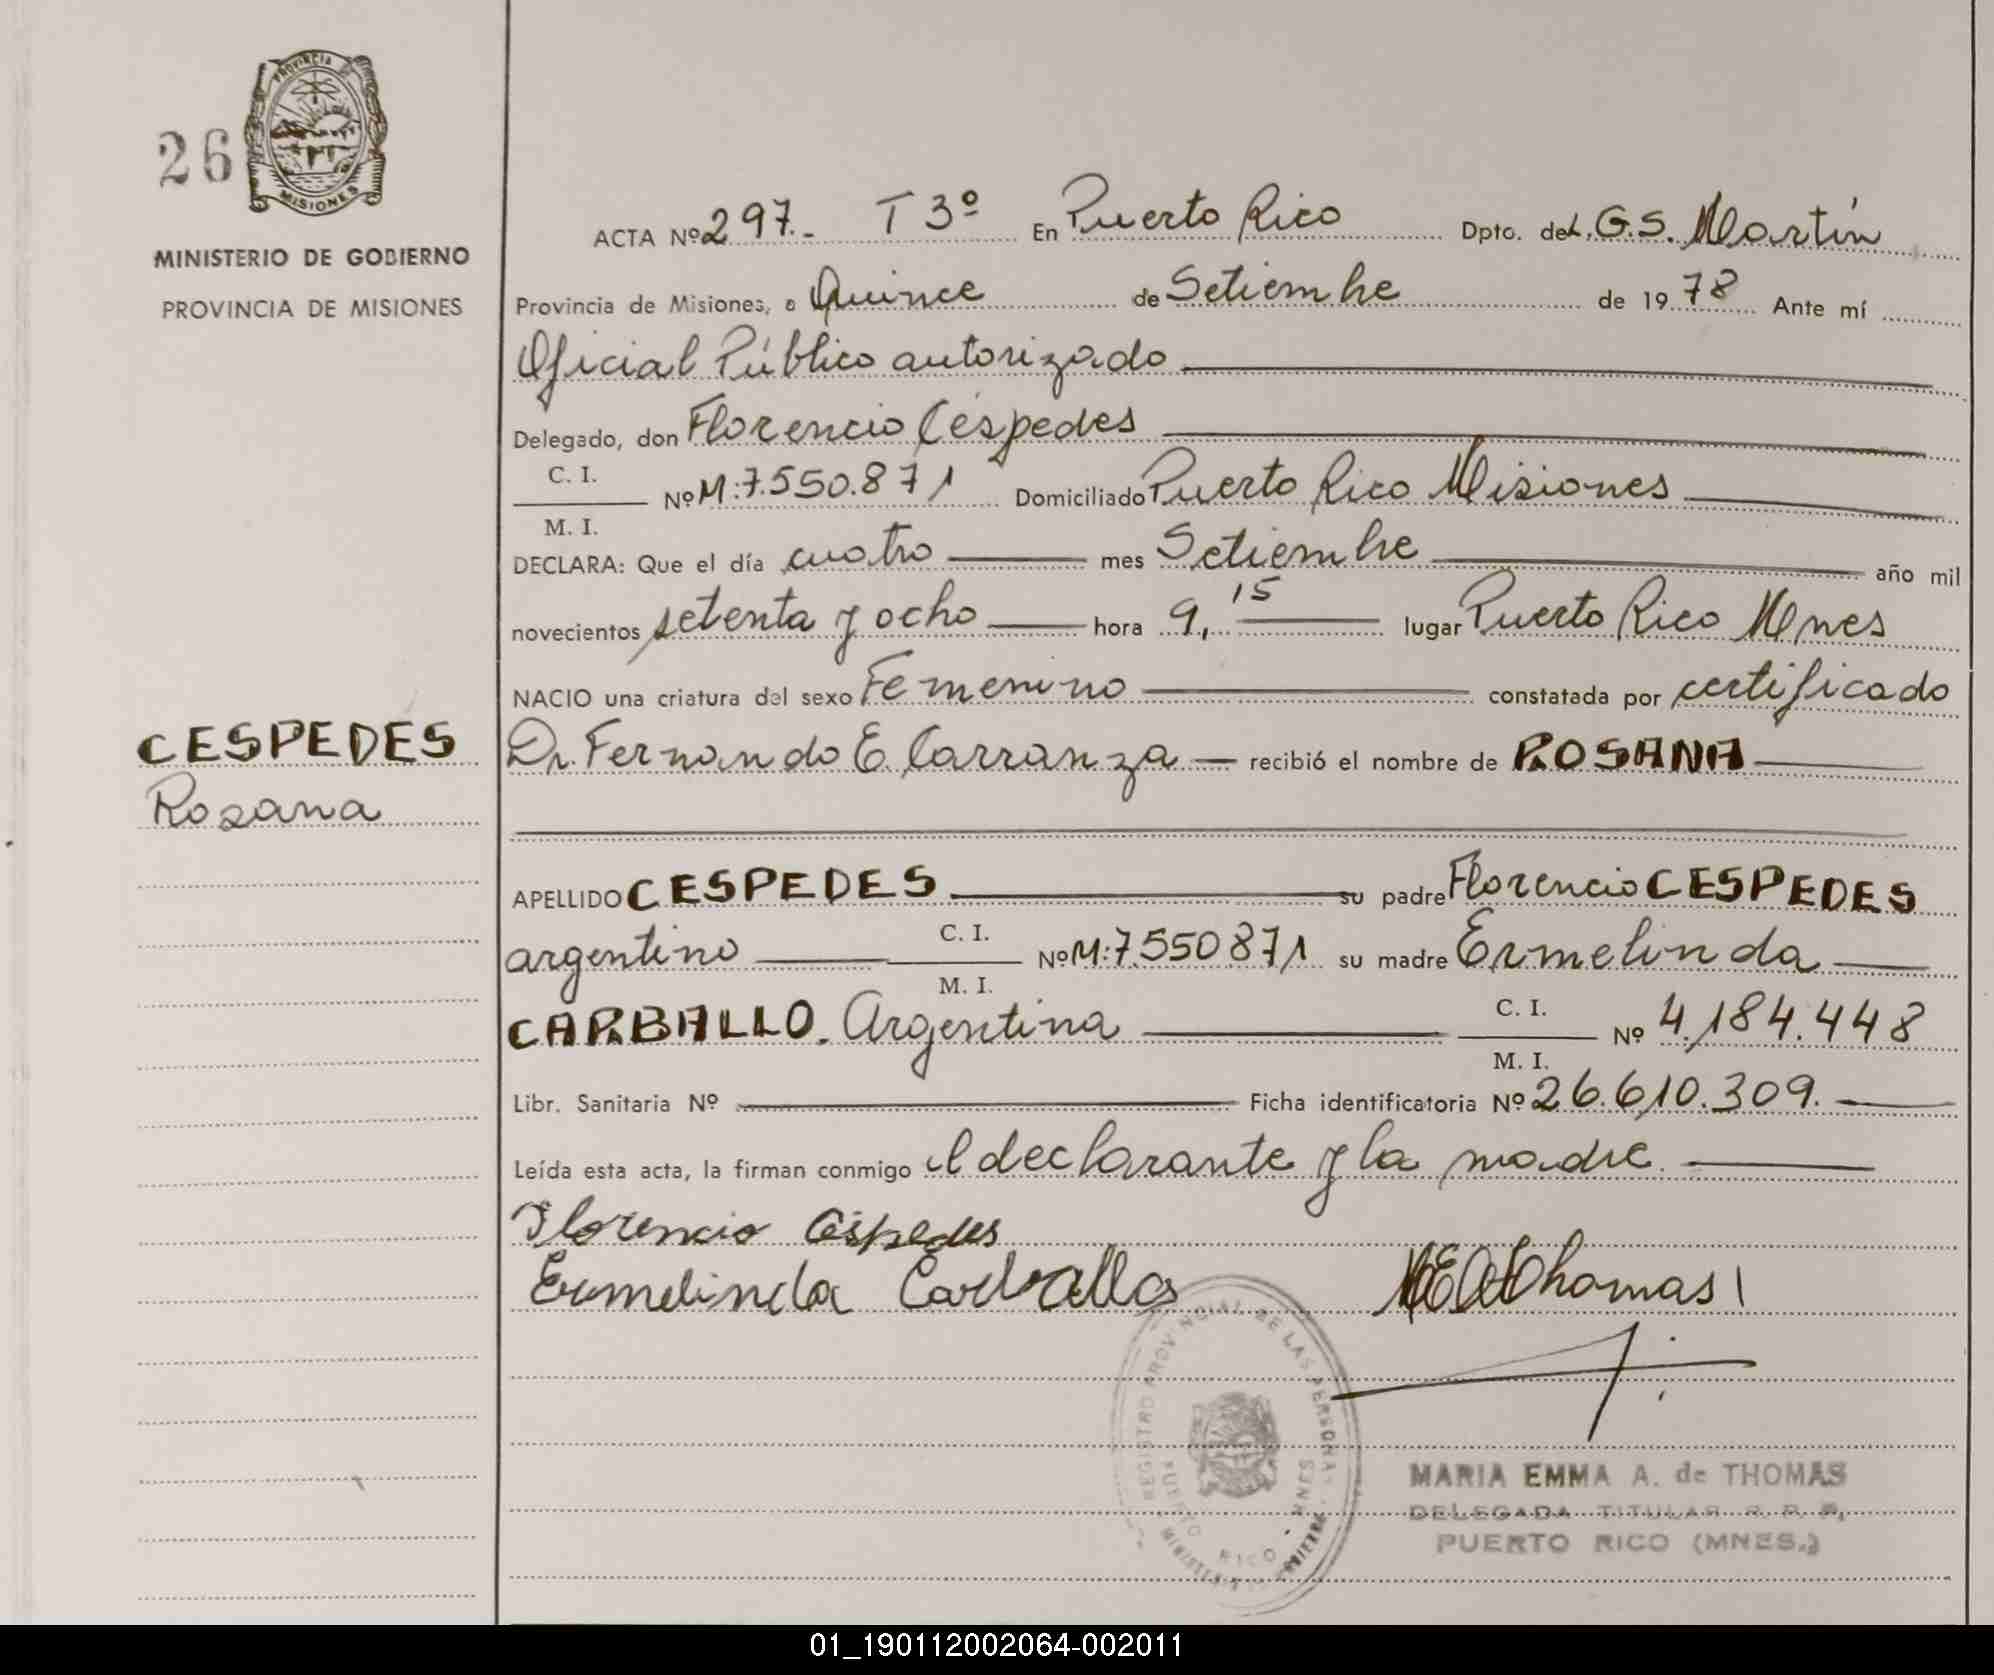 PROVINCIA
MISIONES
26
MINISTERIO DE GOBIERNO
PROVINCIA DE MISIONES
CESPEDES
Rosana
ACTA Nº 297.- T 3º En Puerto Rico Dpto. del L.G.S. Martín
Provincia de Misiones, a Quince de Setiembre de 1978 Ante mí
Oficial Público autorizado
Delegado, don Florencio Céspedes
C. I.
Nº M:7.550.871 Domiciliado Puerto Rico Misiones
M. I.
DECLARA: Que el día cuatro mes Setiembre año mil
novecientos setenta y ocho hora 9,15 lugar Puerto Rico Mnes
NACIO una criatura del sexo Femenino constatada por certificado
Dr. Fernando E. Carranza recibió el nombre de ROSANA
APELLIDO CESPEDES su padre Florencio CESPEDES
argentino C. I. Nº M:7.550871 su madre Ermelinda
M. I.
CARBALLO. Argentina C. I. Nº 4.184.448
M. I.
Libr. Sanitaria Nº Ficha identificatoria Nº 26.610.309.
Leída esta acta, la firman conmigo el declarante y la madre.
Florencio Céspedes
Ermelinda Carballo MEA Thomas
REGISTRO PROVINCIAL DE LAS PERSONAS
PUERTO RICO - MNES
MINISTERIO DE GOBIERNO
MARIA EMMA A. de THOMAS
DELEGADA TITULAR R. P. P.
PUERTO RICO (MNES.)
01_190112002064-002011